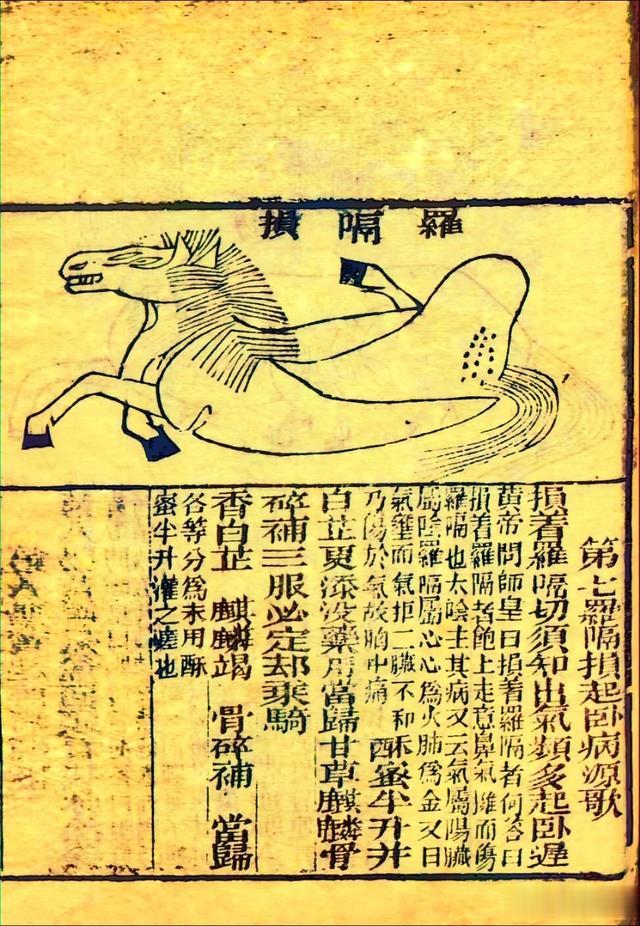 羅隔損
第七羅隔損起卧病源歌
損着羅隔切須知出氣頻多起卧遲
黃帝問師皇曰損着羅隔者何答曰
損着羅隔者飽上走意鼻氣摧而傷
羅隔也太陰主其病又云氣屬陽臟
屬陰羅隔屬心心為火肺為金又曰
氣壅而氣拒二臟不和
乃傷於氣故胸中痛 酥蜜半升并
白芷更添沒藥用當歸甘草麒麟骨
碎補三服必定却乘騎
香白芷 麒麟竭 骨碎補 當歸
各等分為末用酥
蜜半升灌之瘥也